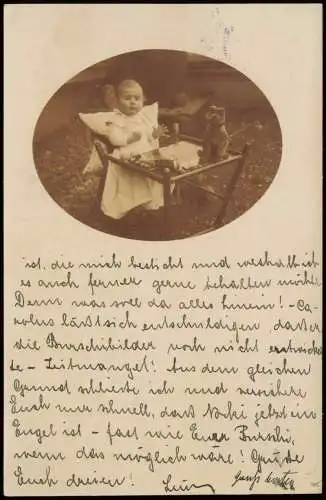 ist, die mich besticht und weshalb ist
es auch ferner gerne behalten möchte
Denn was soll da alles hinein! - Ca-
rolus läßt sich entschuldigen, daß er
die Burschibilder noch nicht entwickel-
te - Zeitmangel! Aus dem gleichen
Grund schließe ich und versichere
Euch nur schnell, daß Nocki jetzt ein
Engel ist - fast wie Euer Burschi,
wenn das möglich wäre! Grüße
Euch dreien!